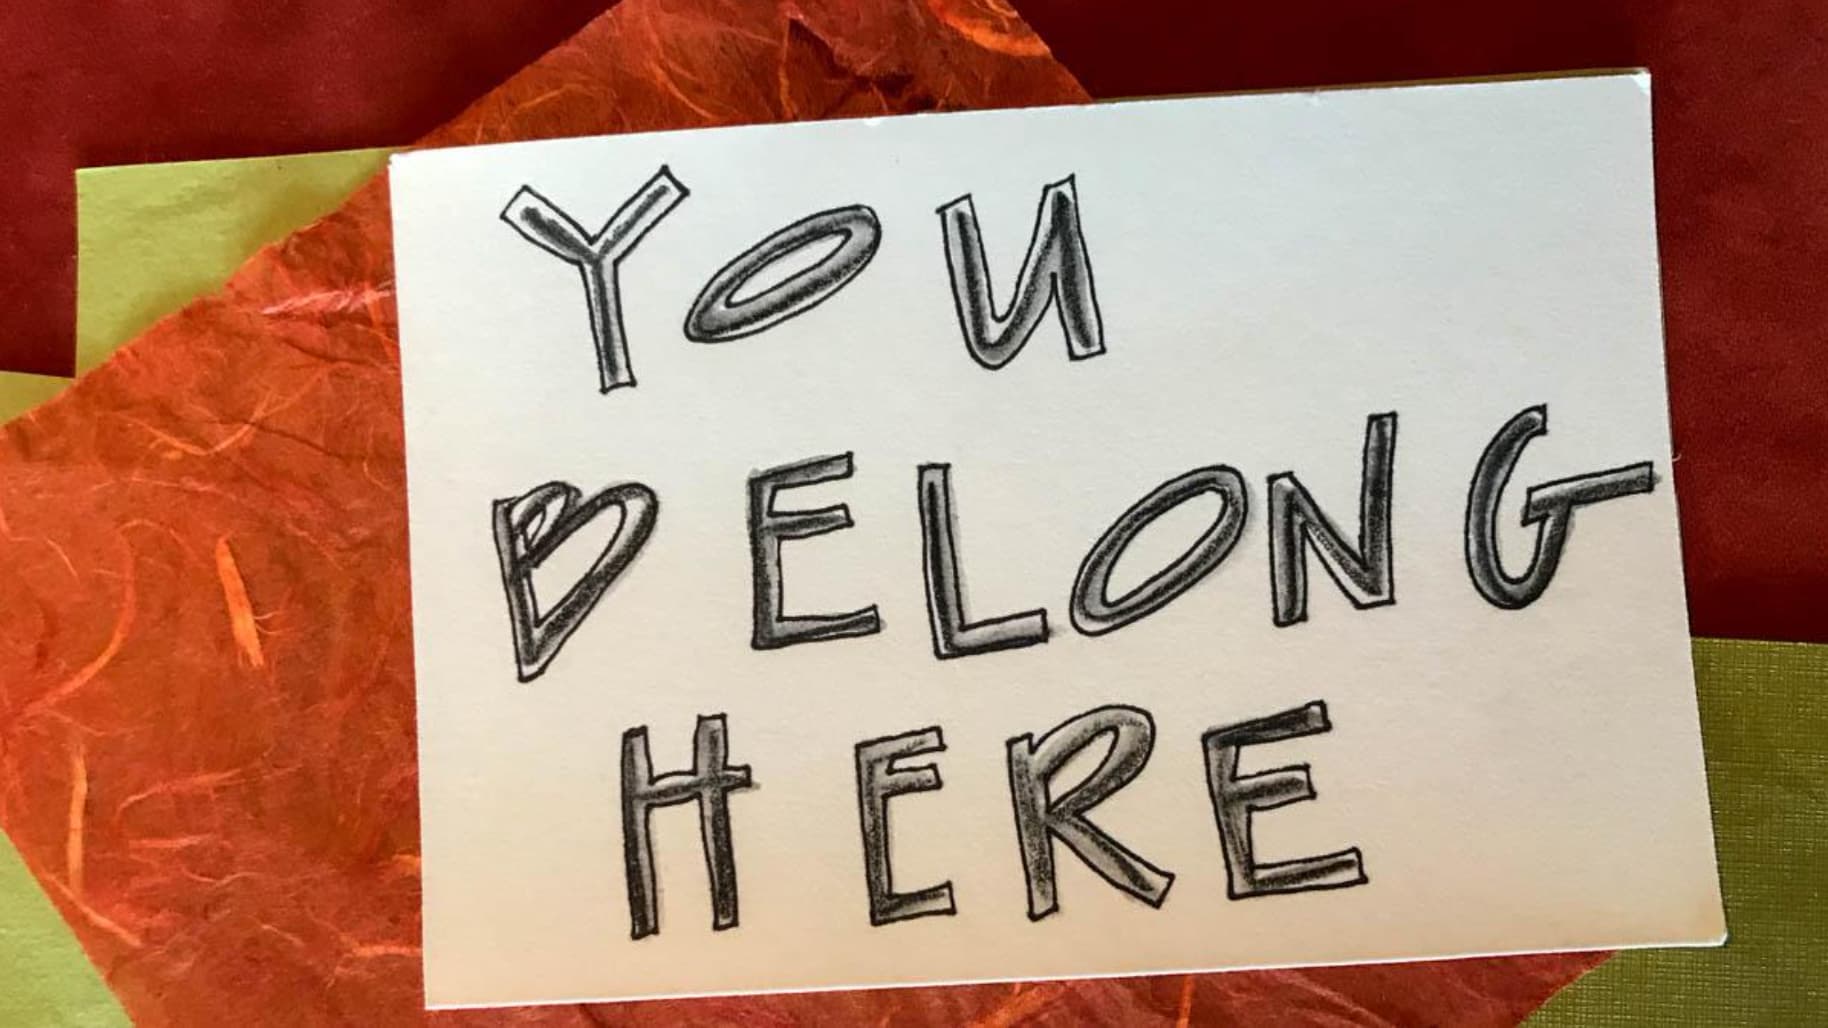 YOU
BELONG
HERE